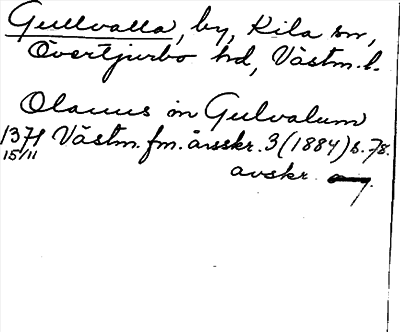 Gullvalla, by, Kila sn,
Övertjurbo hd, Västm. l.
Olauus in Gulvalum
1371 Västm. fm. årsskr. 3 (1884) s. 78.
15/11
avskr.